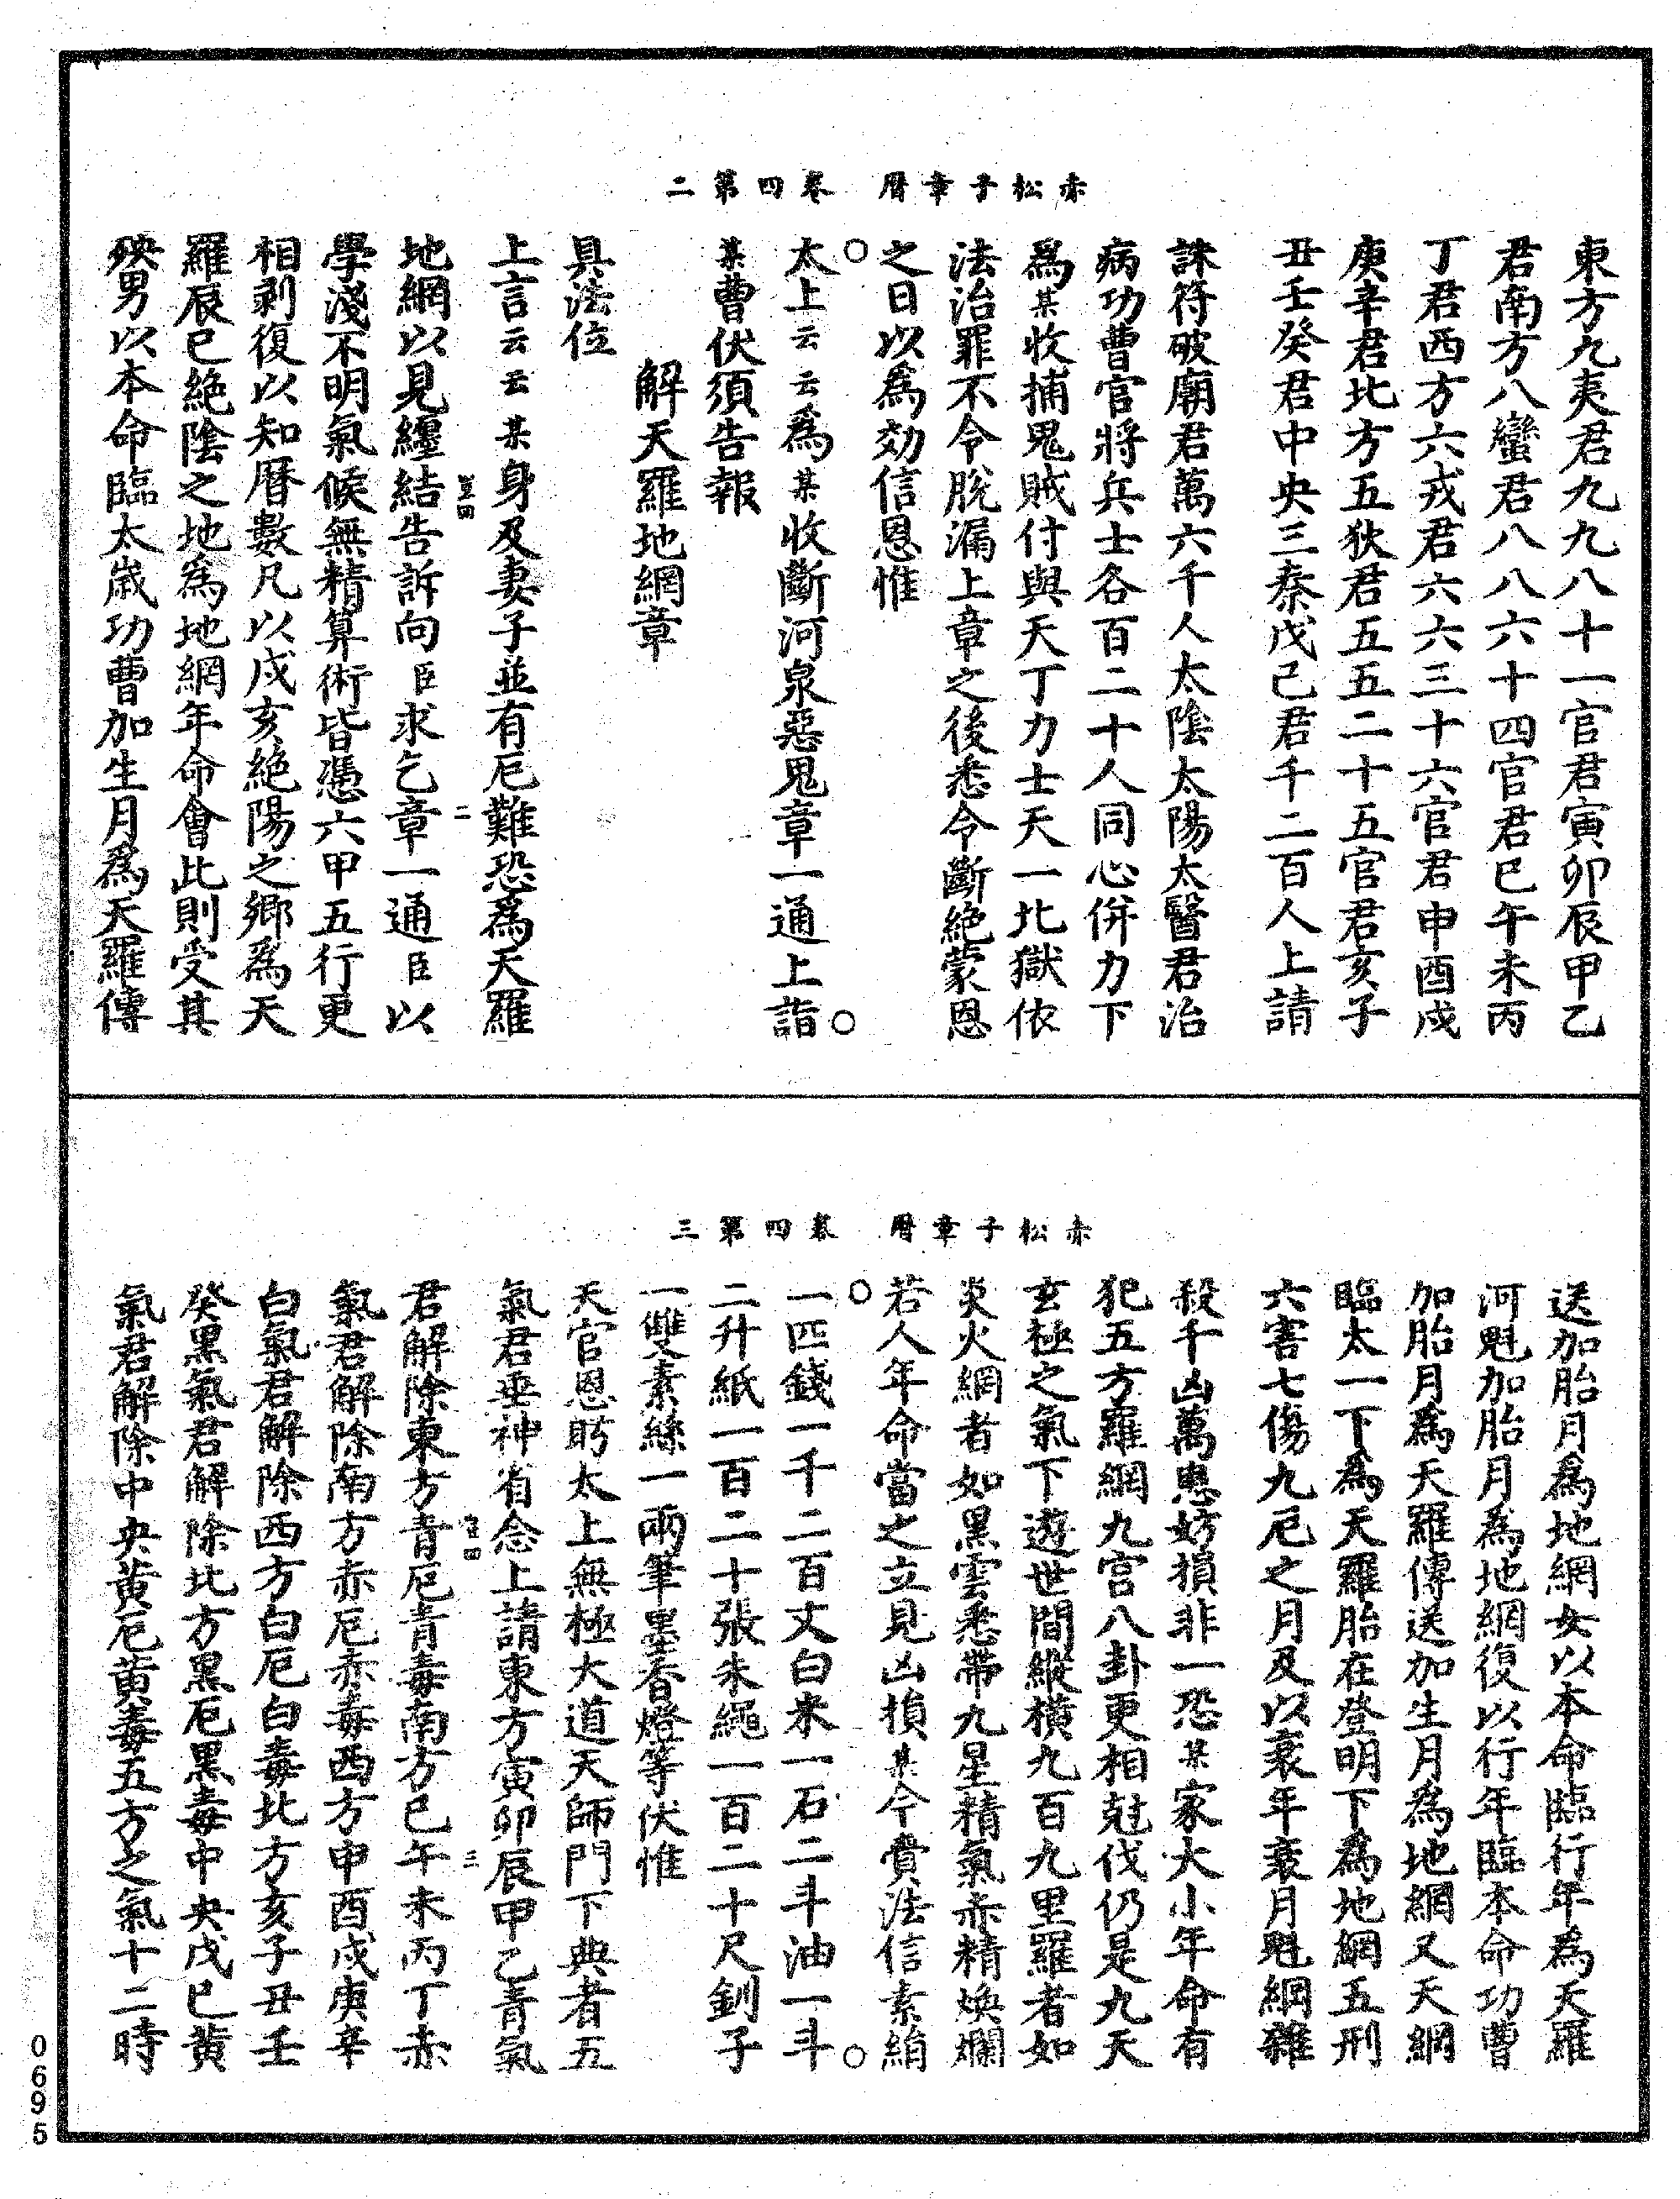 赤松子章曆　卷四第二
東方九夷君九九八十一官君寅卯辰甲乙
君南方八蠻君八八六十四官君巳午未丙
丁君西方六戎君六六三十六官君申酉戌
庚辛君北方五狄君五五二十五官君亥子
丑壬癸君中央三秦戊己君千二百人上請
誅符破廟君萬六千人太陰太陽太醫君治
病功曹官將兵士各百二十人同心併力下
為某收捕鬼賊付與天丁力士天一北獄依
法治罪不令脫漏上章之後悉令斷絕蒙恩
之日以為効信恩惟
太上云云為某收斷河泉惡鬼章一通上詣
某曹伏須告報
解天羅地網章
具法位
上言云云某身及妻子並有厄難恐為天羅
地網以見纏結告訴向臣求乞章一通臣以
學淺不明氣候無精算術皆憑六甲五行更
相剥復以知曆數凡以戌亥絕陽之鄉為天
羅辰巳絕陰之地為地網年命會此則受其
殃男以本命臨太歲功曹加生月為天羅傳
赤松子章曆　卷四第三
送加胎月為地網女以本命臨行年為天羅
河魁加胎月為地網復以行年臨本命功曹
加胎月為天羅傳送加生月為地網又天網
臨太一下為天羅胎在登明下為地網五刑
六害七傷九厄之月及以衰年衰月魁綱雜
殺千凶萬患妨損非一恐某家大小年命有
犯五方羅網九宮八卦更相尅伐仍是九天
玄極之氣下遊世間縱橫九百九里羅者如
炎火網者如黑雲悉帶九星精氣赤精煥爛
若人年命當之立見凶損某今賷法信素絹
一匹錢一千二百文白米一石二斗油一斗
二升紙一百二十張朱繩一百二十尺釧子
一雙素絲一兩筆墨香燈等伏惟
天官恩盻太上無極大道天師門下典者五
氣君垂神省念上請東方寅卯辰甲乙青氣
君解除東方青厄青毒南方巳午未丙丁赤
氣君解除南方赤厄赤毒西方申酉戌庚辛
白氣君解除西方白厄白毒北方亥子丑壬
癸黑氣君解除北方黑厄黑毒中央戊己黃
氣君解除中央黃厄黃毒五方之氣十二時
0695